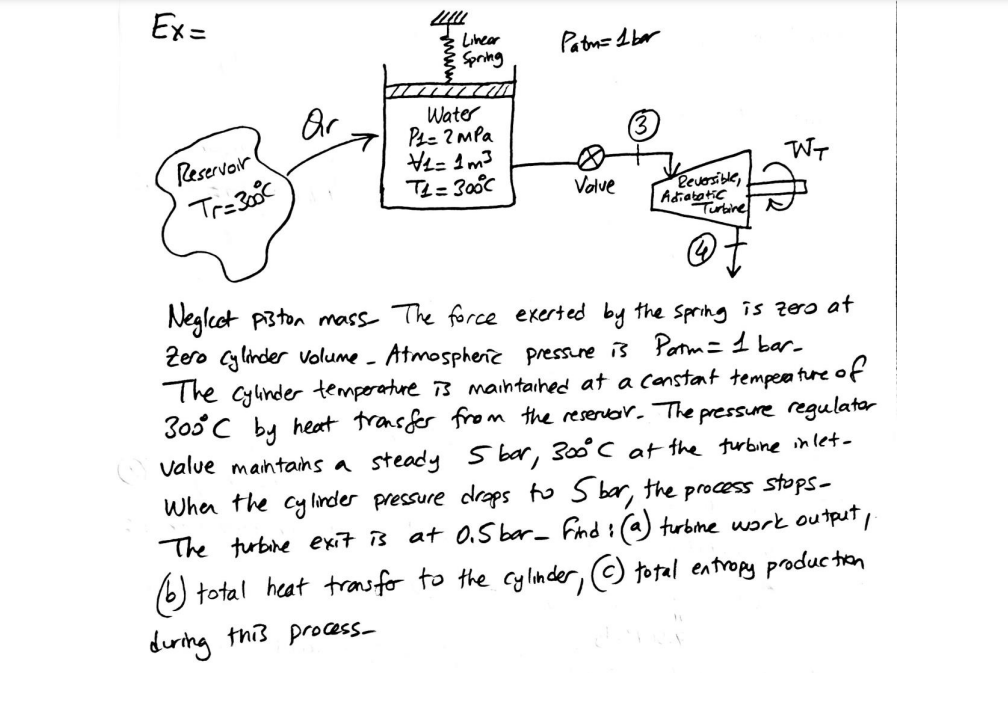 Ex=
Linear
Spring
Patm=1bar
Water
P1=2MPa
V1=1m³
T1=300°C
Qr
Reservoir
Tr=300°C
Valve
3
Reversible,
Adiabatic
Turbine
WT
4
Neglect piston mass- The force exerted by the spring is zero at
zero cylinder volume- Atmospheric pressure is Patm=1 bar-
The cylinder temperature is maintained at a constant temperature of
300°C by heat transfer from the reservoir- The pressure regulator
valve maintains a steady 5 bar, 300°C at the turbine inlet-
When the cylinder pressure drops to 5 bar, the process stops-
The turbine exit is at 0.5bar- Find: (a) turbine work output,
(b) total heat transfer to the cylinder, (c) total entropy production
during this process-